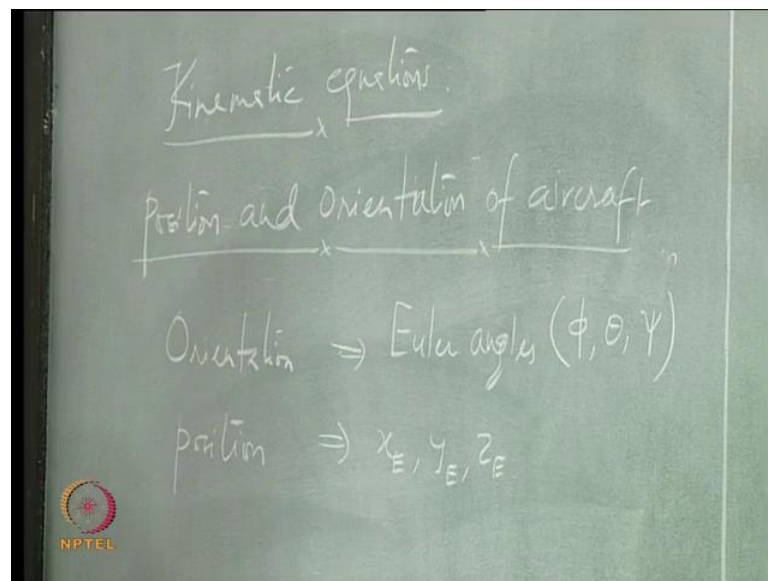 Kinematic equations.
position and orientation of aircraft
in
Orientation ⇒ Euler angles (ϕ, θ, ψ)
position ⇒ x_E, y_E, z_E
NPTEL